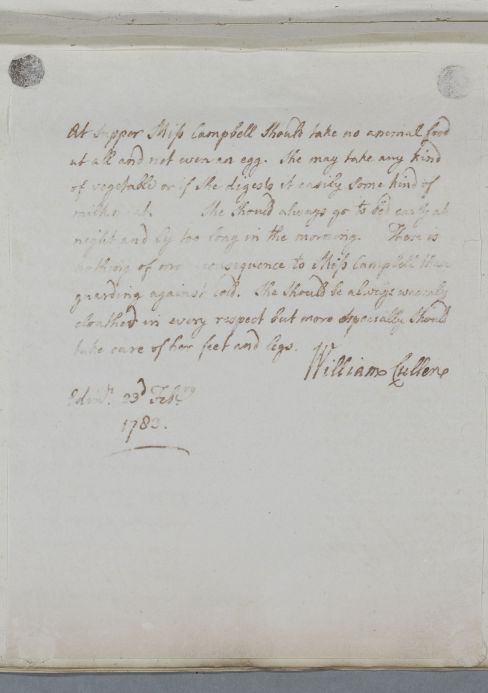 At supper Miſs Campbell should take no animal food
at all and not even an egg. She may take any kind
of vegetable or if she digests it easily some kind of
milkmeat. She should always go to bed early at
night and ly too long in the morning. There is
nothing of more consequence to Miſs Campbell than
guarding against cold. She should be always warmly
cloathed in every respect but more especially should
take care of her feet and legs.
William Cullen
Edinr. 23d Febry
1783.